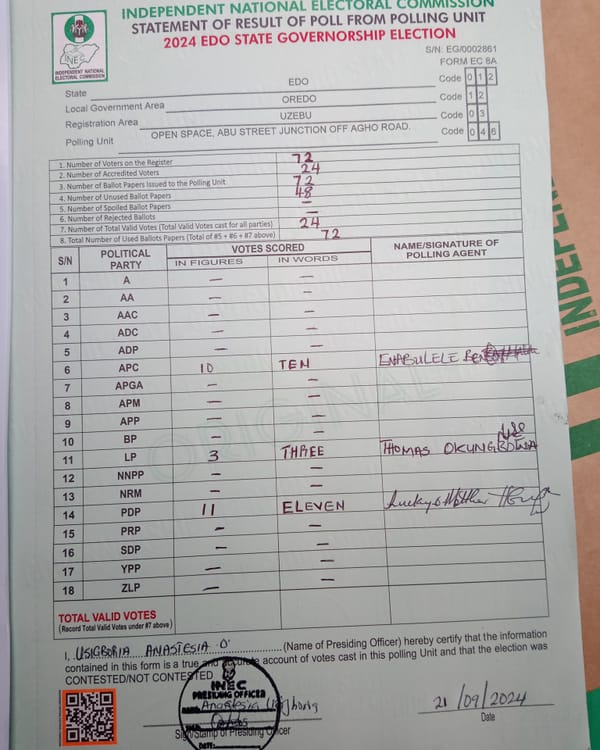 INDEPENDENT NATIONAL ELECTORAL COMMISSION
STATEMENT OF RESULT OF POLL FROM POLLING UNIT
2024 EDO STATE GOVERNORSHIP ELECTION
INEC
INDEPENDENT NATIONAL
ELECTORAL COMMISSION
S/N: EG/0002861
FORM EC 8A
State EDO Code 0 1 2
Local Government Area OREDO Code 1 2
Registration Area UZEBU Code 0 3
Polling Unit OPEN SPACE, ABU STREET JUNCTION OFF AGHO ROAD. Code 0 4 6
1. Number of Voters on the Register 72
2. Number of Accredited Voters 24
3. Number of Ballot Papers Issued to the Polling Unit 72
4. Number of Unused Ballot Papers 48
5. Number of Spoiled Ballot Papers —
6. Number of Rejected Ballots —
7. Number of Total Valid Votes (Total Valid Votes cast for all parties) 24
8. Total Number of Used Ballots Papers (Total of #5 + #6 + #7 above) 72
S/N POLITICAL PARTY VOTES SCORED NAME/SIGNATURE OF POLLING AGENT
IN FIGURES IN WORDS
1 A — —
2 AA — —
3 AAC — —
4 ADC — —
5 ADP — —
6 APC 10 TEN ENABULELE
7 APGA — —
8 APM — —
9 APP — —
10 BP — —
11 LP 3 THREE THOMAS OKUNGBOWA
12 NNPP — —
13 NRM — —
14 PDP 11 ELEVEN Lucky
15 PRP — —
16 SDP — —
17 YPP — —
18 ZLP — —
ORIGINAL
TOTAL VALID VOTES
(Record Total Valid Votes under #7 above)
I, USIGBORIA ANASTESIA O' (Name of Presiding Officer) hereby certify that the information
contained in this form is a true and accurate account of votes cast in this polling Unit and that the election was
CONTESTED/NOT CONTESTED
INEC
PRESIDING OFFICER
NAME: Anastesia
DATE:
Sign/Stamp of Presiding Officer
21/09/2024
Date
INDEPEN